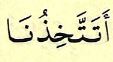 أَتَتَّخِذُنَا